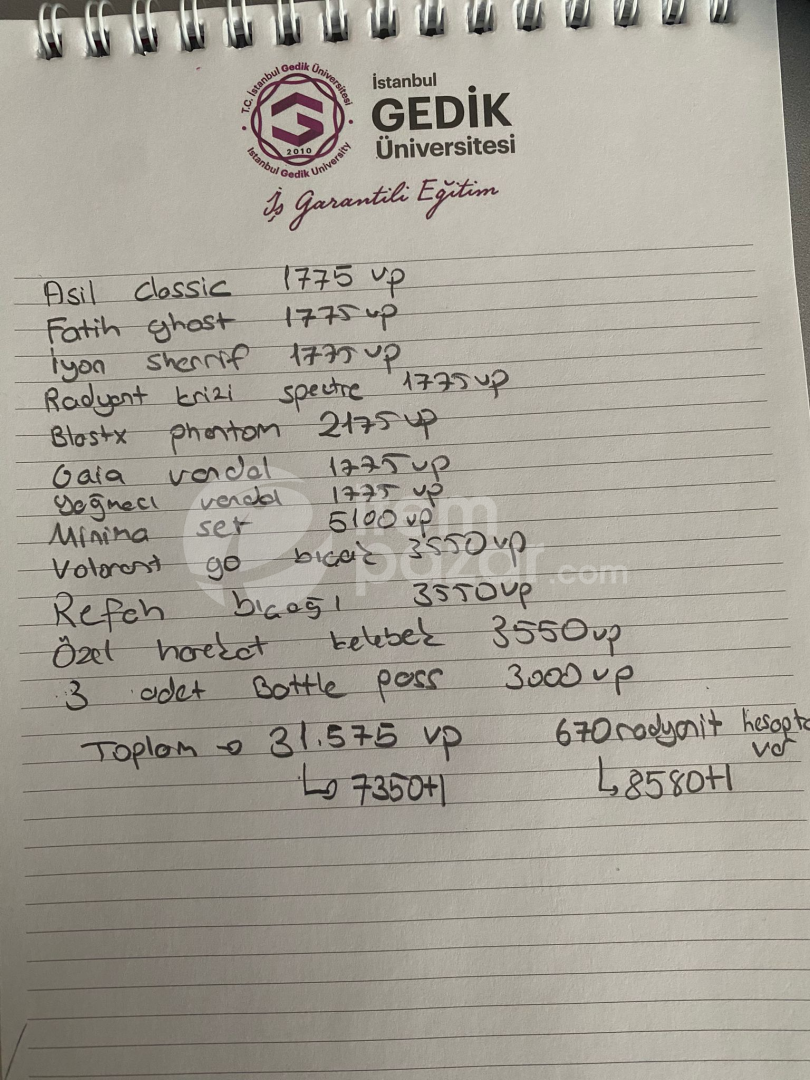 T.C. İstanbul Gedik Üniversitesi
2010
Istanbul Gedik University
İstanbul
GEDİK
Üniversitesi
İş Garantili Eğitim
Asil classic 1775 vp
Fatih ghost 1775 vp
İyon sherrif 1775 vp
Radyant krizi spectre 1775 vp
Blastx phantom 2175 vp
Gaia vandal 1775 vp
Yağmacı vandal 1775 vp
Minima set 5100 vp
Valorant go bıçak 3550 vp
Refah bıçağı 3550 vp
Özel harekat kelebek 3550 vp
3 adet Battle pass 3000 vp
Toplam → 31.575 vp 670 radyanit hesapta var
↳ 7350tl ↳ 8580tl
itempazar.com